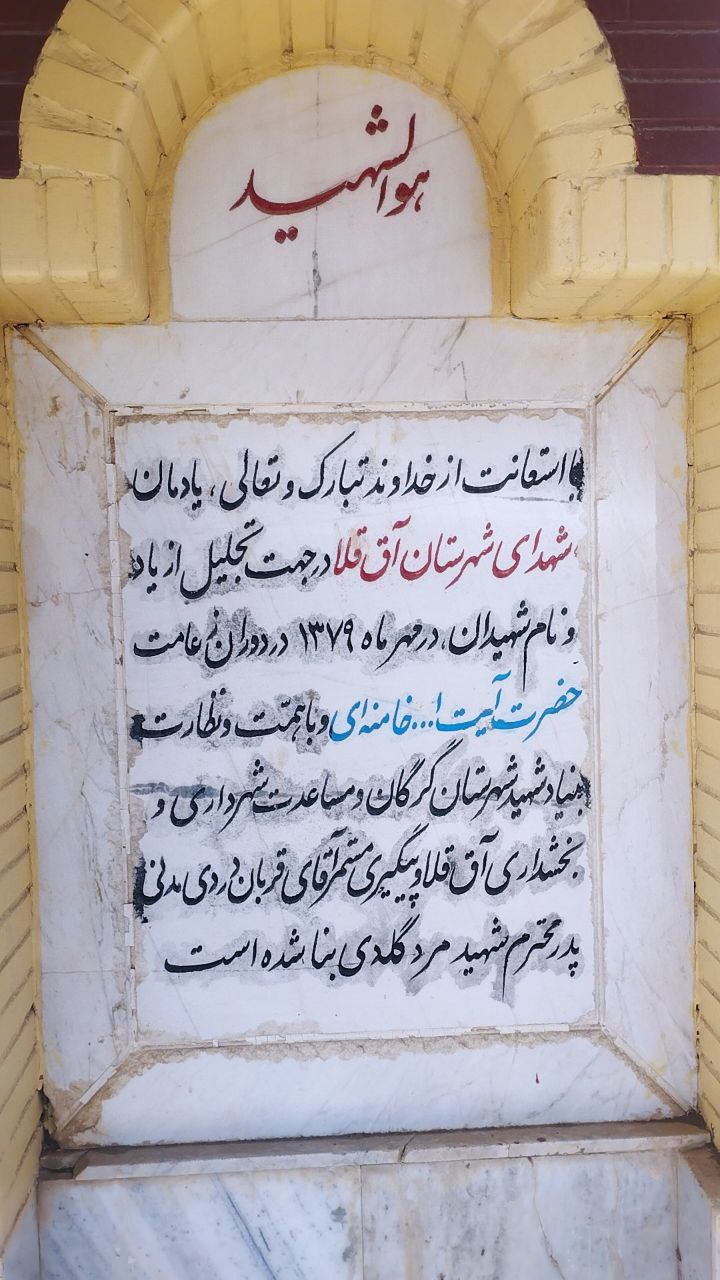 هوالشهید
با استعانت از خداوند تبارک و تعالی، یادمان
شهدای شهرستان آق قلا در جهت تجلیل از یاد
و نام شهیدان، در مهر ماه ۱۳۷۹ در دوران زعامت
حضرت آیت ا... خامنه‌ای و با همت و نظارت
بنیاد شهید شهرستان گرگان و مساعدت شهرداری و
بخشداری آق قلا و پیگیری مستمر آقای قربان دردی مدنی
پدر محترم شهید مرد گلدی بنا شده است